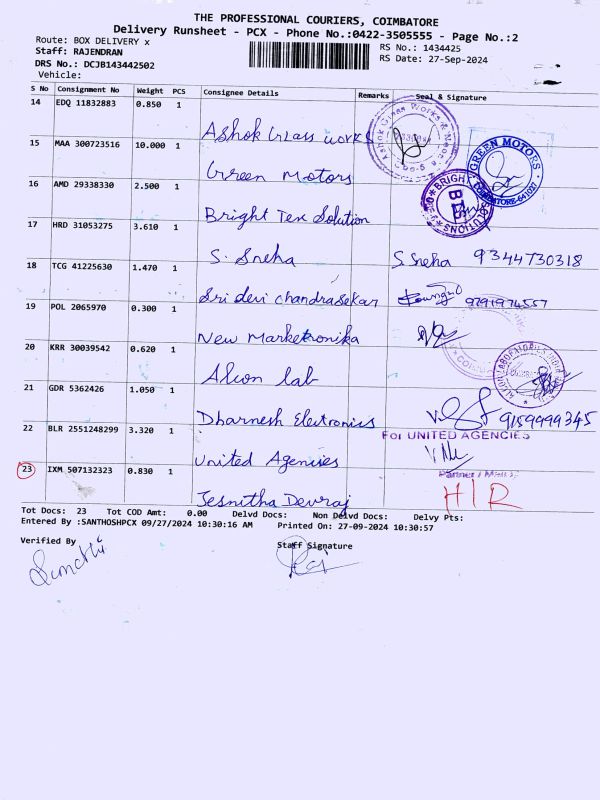 THE PROFESSIONAL COURIERS, COIMBATORE
Delivery Runsheet - PCX - Phone No.:0422-3505555 - Page No.:2
Route: BOX DELIVERY x
RS No.: 1434425
Staff: RAJENDRAN
RS Date: 27-Sep-2024
DRS No.: DCJB143442502
Vehicle:
S No Consignment No Weight PCS Consignee Details Remarks Seal & Signature
14 EDQ 11832883 0.850 1
Ashok Glass works
15 MAA 300723516 10.000 1
Green Motors
GREEN MOTORS
COIMBATORE-641027
16 AMD 29338330 2.500 1
Bright Tex Solution
BRIGHT SOLUTIONS
BTS
17 HRD 31053275 3.610 1
S. Sneha S. Sneha 9344730318
18 TCG 41225630 1.470 1
Sri devi chandrasekar 9791974557
19 POL 2065970 0.300 1
New Marketronika
20 KRR 30039542 0.620 1
Alcon lab
21 GDR 5362426 1.050 1
Dharnesh Electronics 9159999345
22 BLR 2551248299 3.320 1
For UNITED AGENCIES
United Agencies
23 IXM 507132323 0.830 1
Jesnitha Devraj H/R
Tot Docs: 23 Tot COD Amt: 0.00 Delvd Docs: Non Delvd Docs: Delvy Pts:
Entered By :SANTHOSHPCX 09/27/2024 10:30:16 AM Printed On: 27-09-2024 10:30:57
Verified By Staff Signature